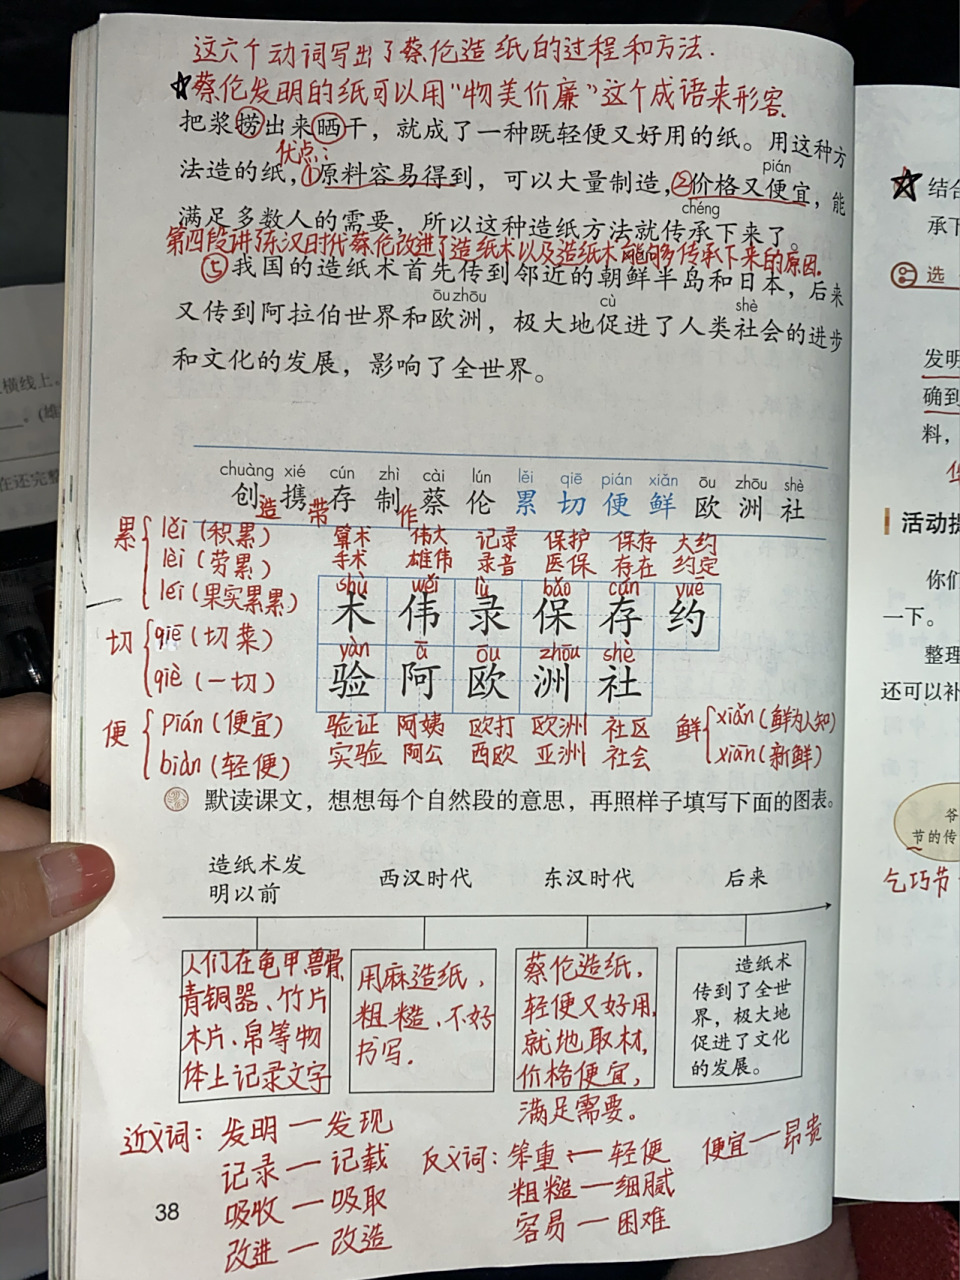 这六个动词写出了蔡伦造纸的过程和方法.
★蔡伦发明的纸可以用"物美价廉"这个成语来形容.
把浆捞出来晒干，就成了一种既轻便又好用的纸。用这种方
优点：
pián
法造的纸，①原料容易得到，可以大量制造，②价格又便宜，能
chéng
满足多数人的需要，所以这种造纸方法就传承下来了。
第四段讲了东汉时代蔡伦改进了造纸术以及造纸术能向多传承下来的原因.
⑤我国的造纸术首先传到邻近的朝鲜半岛和日本，后来
ōu zhōu cù shè
又传到阿拉伯世界和欧洲，极大地促进了人类社会的进步
和文化的发展，影响了全世界。
chuàng xié cún zhì cài lún lěi qiē pián xiǎn ōu zhōu shè
创 携 存 制 蔡 伦 累 切 便 鲜 欧 洲 社
造 带 作
累 lěi（积累）
lèi（劳累）
léi（果实累累）
切 qiē（切菜）
qiè（一切）
便 pián（便宜）
biàn（轻便）
算术 伟大 记录 保护 保存 大约
手术 雄伟 录音 医保 存在 约定
shù wěi lù bǎo cún yuē
术 伟 录 保 存 约
yàn ā ōu zhōu shè
验 阿 欧 洲 社
验证 阿姨 欧打 欧洲 社区
实验 阿公 西欧 亚洲 社会
鲜 xiǎn（鲜为人知）
xiān（新鲜）
默读课文，想想每个自然段的意思，再照样子填写下面的图表。
造纸术发
明以前
西汉时代
东汉时代
后来
人们在龟甲、兽骨、
青铜器、竹片
木片、帛等物
体上记录文字
用麻造纸，
粗糙、不好
书写.
蔡伦造纸，
轻便又好用，
就地取材，
价格便宜，
满足需要。
造纸术
传到了全世
界，极大地
促进了文化
的发展。
近义词：发明—发现
记录—记载
吸收—吸取
改进—改造
反义词：笨重—轻便
粗糙—细腻
容易—困难
便宜—昂贵
38
横线上。
在还完整
★结合
承下
选
发明
确到
料，
活动提
你们
一下。
整理
还可以补
爷
节的传
乞巧节